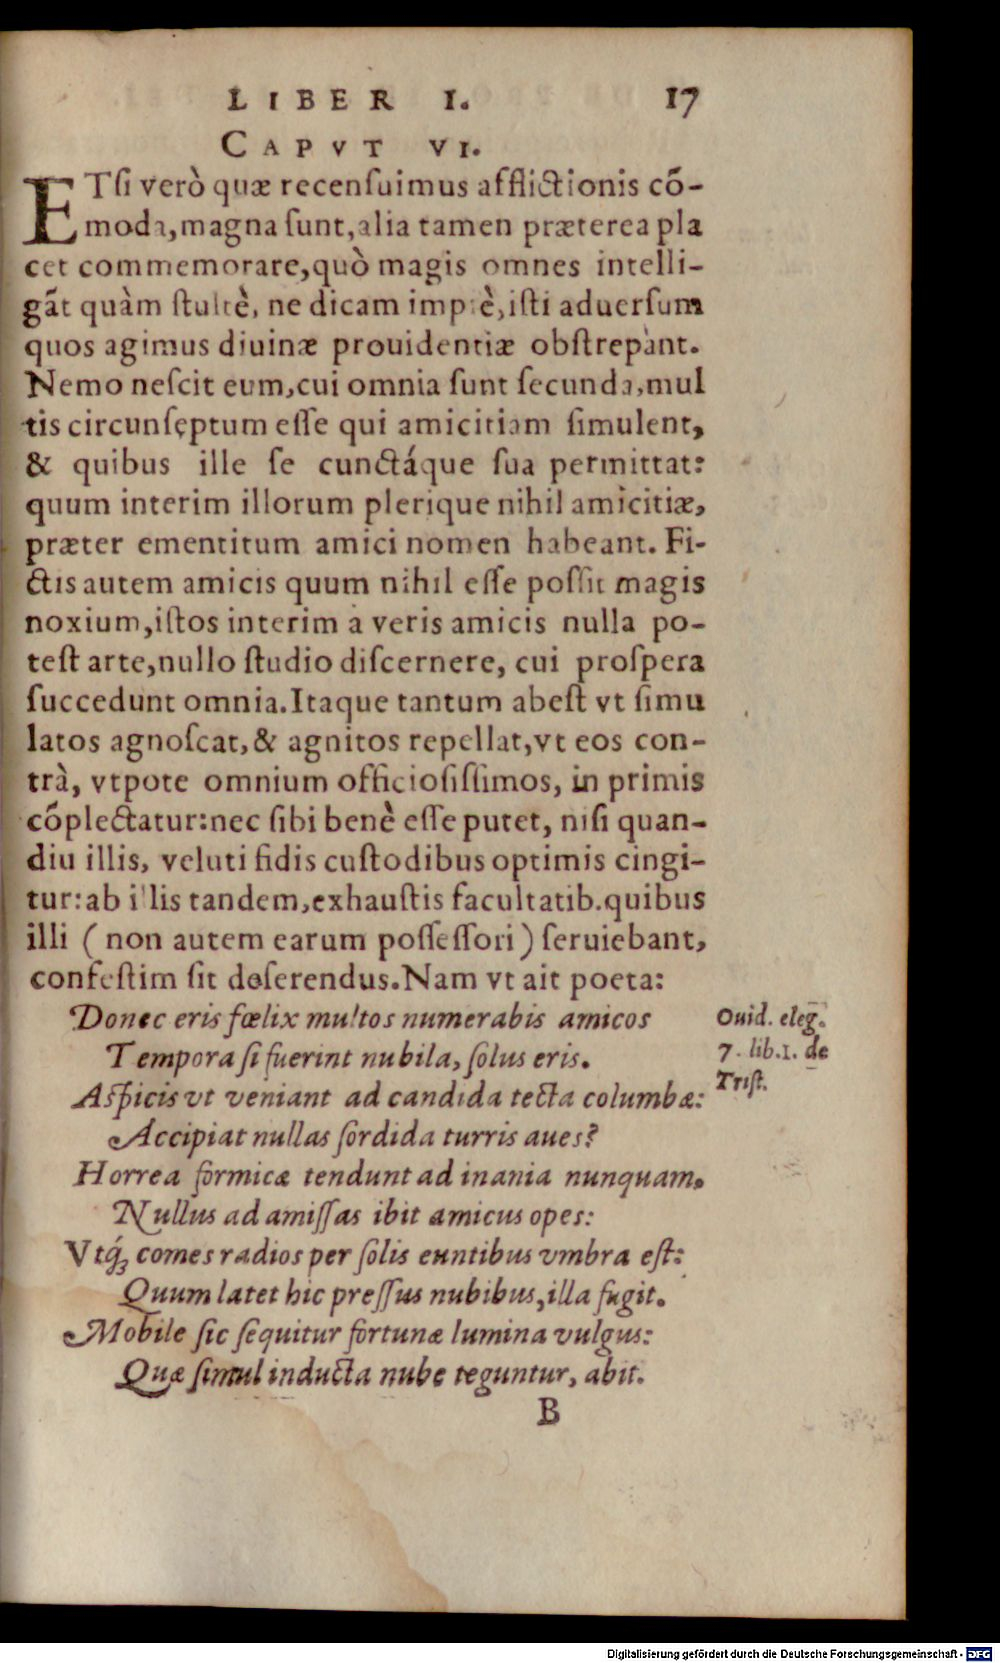 LIBER I. 17
CAPVT VI.
ETſi verò quæ recenſuimus afflictionis cō-
moda, magna ſunt, alia tamen præterea pla
cet commemorare, quò magis omnes intelli-
gāt quàm ſtultè, ne dicam impiè, iſti aduerſum
quos agimus diuinæ prouidentiæ obſtrepànt.
Nemo neſcit eum, cui omnia ſunt ſecunda, mul
tis circunſęptum eſſe qui amicitiam ſimulent,
& quibus ille ſe cunctáque ſua permittat:
quum interim illorum plerique nihil amicitiæ,
præter ementitum amici nomen habeant. Fi-
ctis autem amicis quum nihil eſſe poſſit magis
noxium, iſtos interim à veris amicis nulla po-
teſt arte, nullo ſtudio diſcernere, cui proſpera
ſuccedunt omnia. Itaque tantum abeſt vt ſimu
latos agnoſcat, & agnitos repellat, vt eos con-
trà, vtpote omnium officioſiſſimos, in primis
cōplectatur: nec ſibi benè eſſe putet, niſi quan-
diu illis, veluti fidis cuſtodibus optimis cingi-
tur: ab illis tandem, exhauſtis facultatib. quibus
illi (non autem earum poſſeſſori) ſeruiebant,
confeſtim ſit deſerendus. Nam vt ait poeta:
Donec eris fœlix multos numerabis amicos
Tempora ſi fuerint nubila, ſolus eris.
Aſpicis vt veniant ad candida tecta columbæ:
Accipiat nullas ſordida turris aues?
Horrea formicæ tendunt ad inania nunquam.
Nullus ad amiſſas ibit amicus opes:
Vtq́; comes radios per ſolis euntibus vmbra eſt:
Quum latet hic preſſus nubibus, illa fugit.
Mobile ſic ſequitur fortunæ lumina vulgus:
Quæ ſimul inducta nube teguntur, abit.
Ouid. eleg.
7. lib. 1. de
Triſt.
B
Digitalisierung gefördert durch die Deutsche Forschungsgemeinschaft - DFG